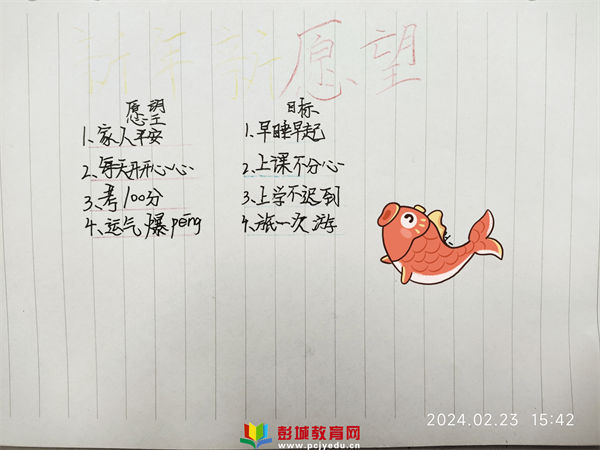 新年新愿望
愿望
1、家人平安
2、每天开开心心
3、考100分
4、运气爆péng
目标
1、早睡早起
2、上课不分心
3、上学不迟到
4、旅一次游
2024.02.23 15:42
彭城教育网
www.pcjyedu.cn